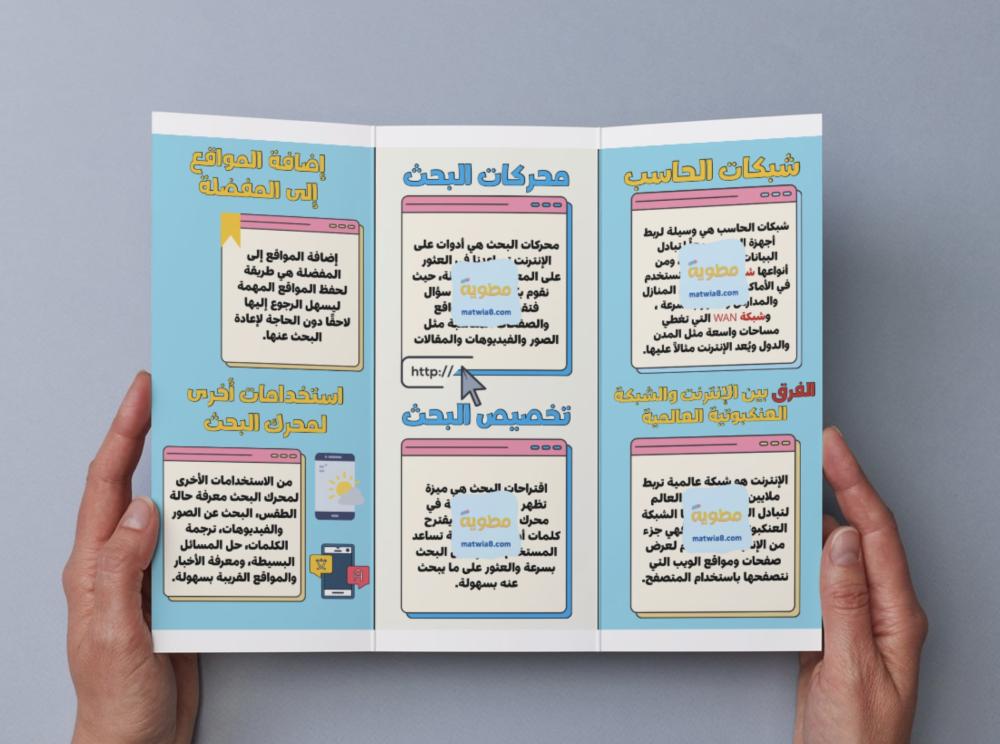 شبكات الحاسب
شبكات الحاسب هي وسيلة لربط
أجهزة لتبادل
البيانات ومن
أنواعها تستخدم
في الأماكن المنازل
والمدارس
وشبكة WAN التي تغطي
مساحات واسعة مثل المدن
والدول ويُعد الإنترنت مثالاً عليها.
مطوية
matwia8.com
الفرق بين الإنترنت والشبكة
العنكبوتية العالمية
الإنترنت هو شبكة عالمية تربط
ملايين العالم
لتبادل الشبكة
فهي جزء
من لعرض
صفحات ومواقع الويب التي
نتصفحها باستخدام المتصفح.
مطوية
matwia8.com
محركات البحث
محركات البحث هي أدوات على
الإنترنت تساعدنا في العثور
على حيث
نقوم سؤال
والصفحات مثل
الصور والفيديوهات والمقالات
مطوية
matwia8.com
http://
تخصيص البحث
اقتراحات البحث هي ميزة
تظهر في
محرك يقترح
كلمات تساعد
البحث
بسرعة والعثور على ما يبحث
عنه بسهولة.
مطوية
matwia8.com
إضافة المواقع
إلى المفضلة
إضافة المواقع إلى
المفضلة هي طريقة
لحفظ المواقع المهمة
ليسهل الرجوع إليها
لاحقًا دون الحاجة لإعادة
البحث عنها.
استخدامات أخرى
لمحرك البحث
من الاستخدامات الأخرى
لمحرك البحث معرفة حالة
الطقس، البحث عن الصور
والفيديوهات، ترجمة
الكلمات، حل المسائل
البسيطة، ومعرفة الأخبار
والمواقع القريبة بسهولة.